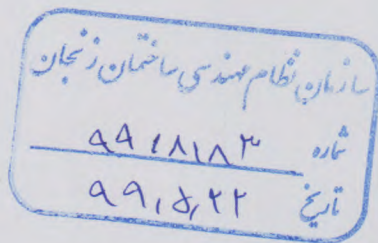 سازمان نظام مهندسی ساختمان زنجان
شماره ۹۹/۸۱۸۳
تاریخ ۹۹/۵/۲۲